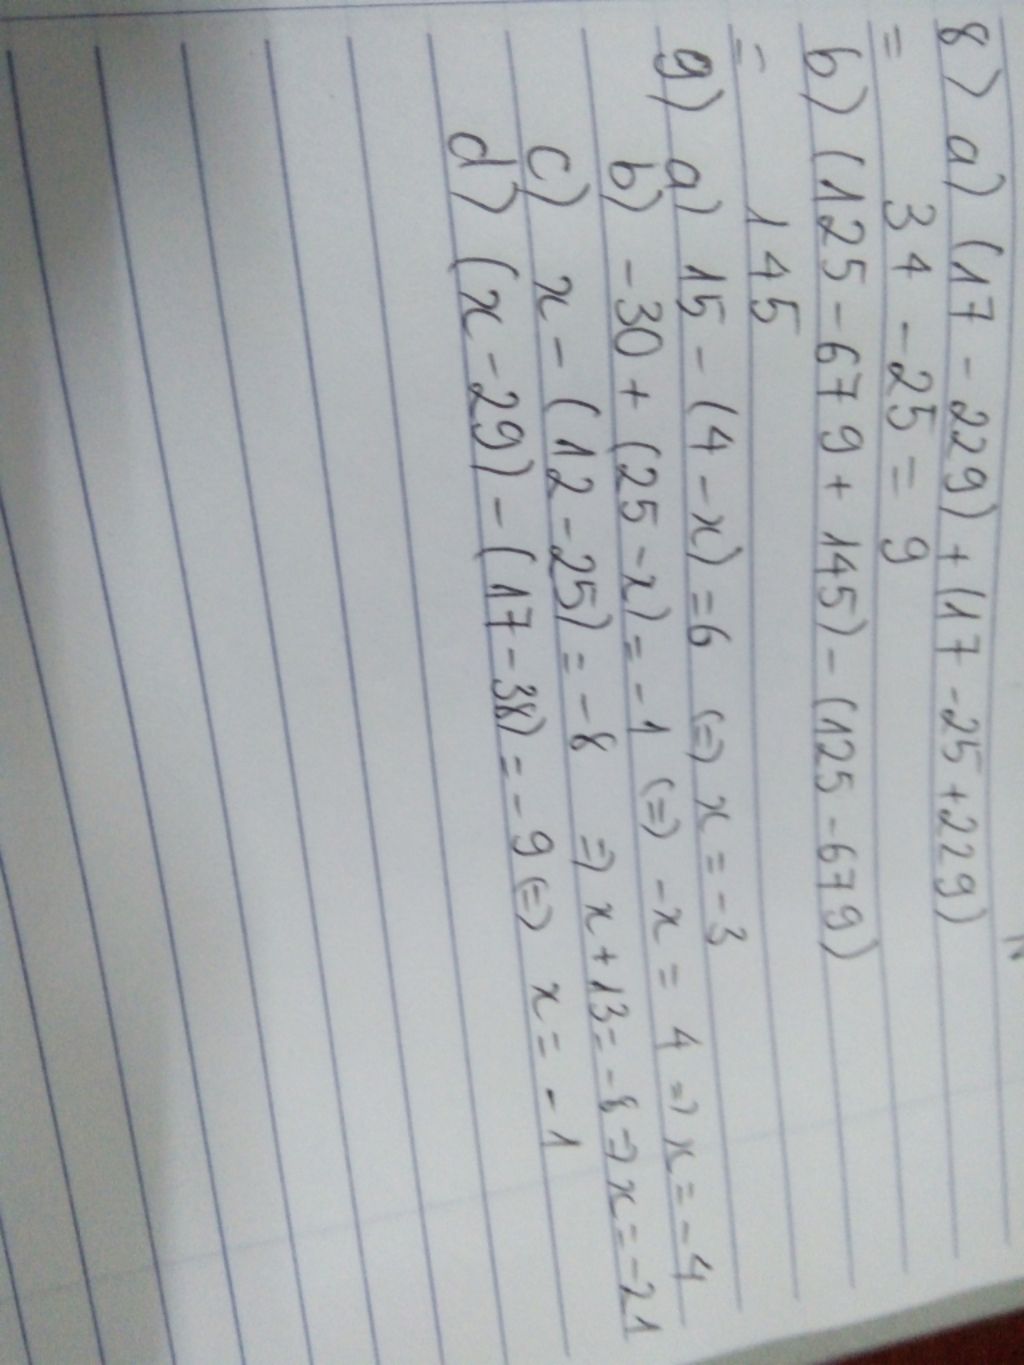 8) a) (17 - 229) + (17 - 25 + 229)
= 34 - 25 = 9
b) (125 - 679 + 145) - (125 - 679)
= 145
9) a) 15 - (4 - x) = 6 (=) x = -3
b) -30 + (25 - x) = -1 (=) -x = 4 => x = -4
c) x - (12 - 25) = -8 => x + 13 = -8 => x = -21
d) (x - 29) - (17 - 38) = -9 (=) x = -1